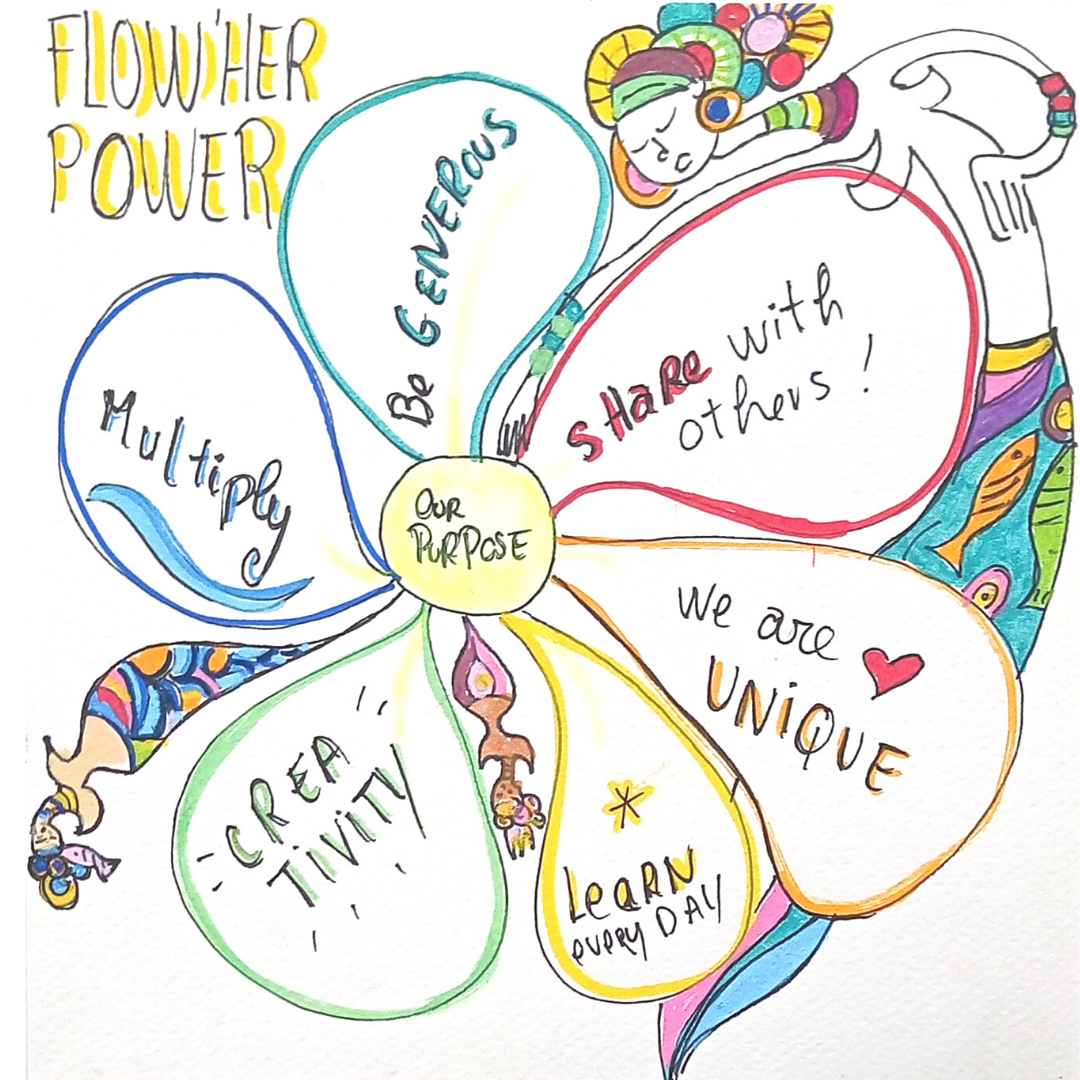 FLOW'HER
POWER
Be GENEROUS
SHaRe with
others!
Multiply
OUR
PURPOSE
We are
UNiQUE
CREA
TiViTY
LeaRN
eveRy DAY